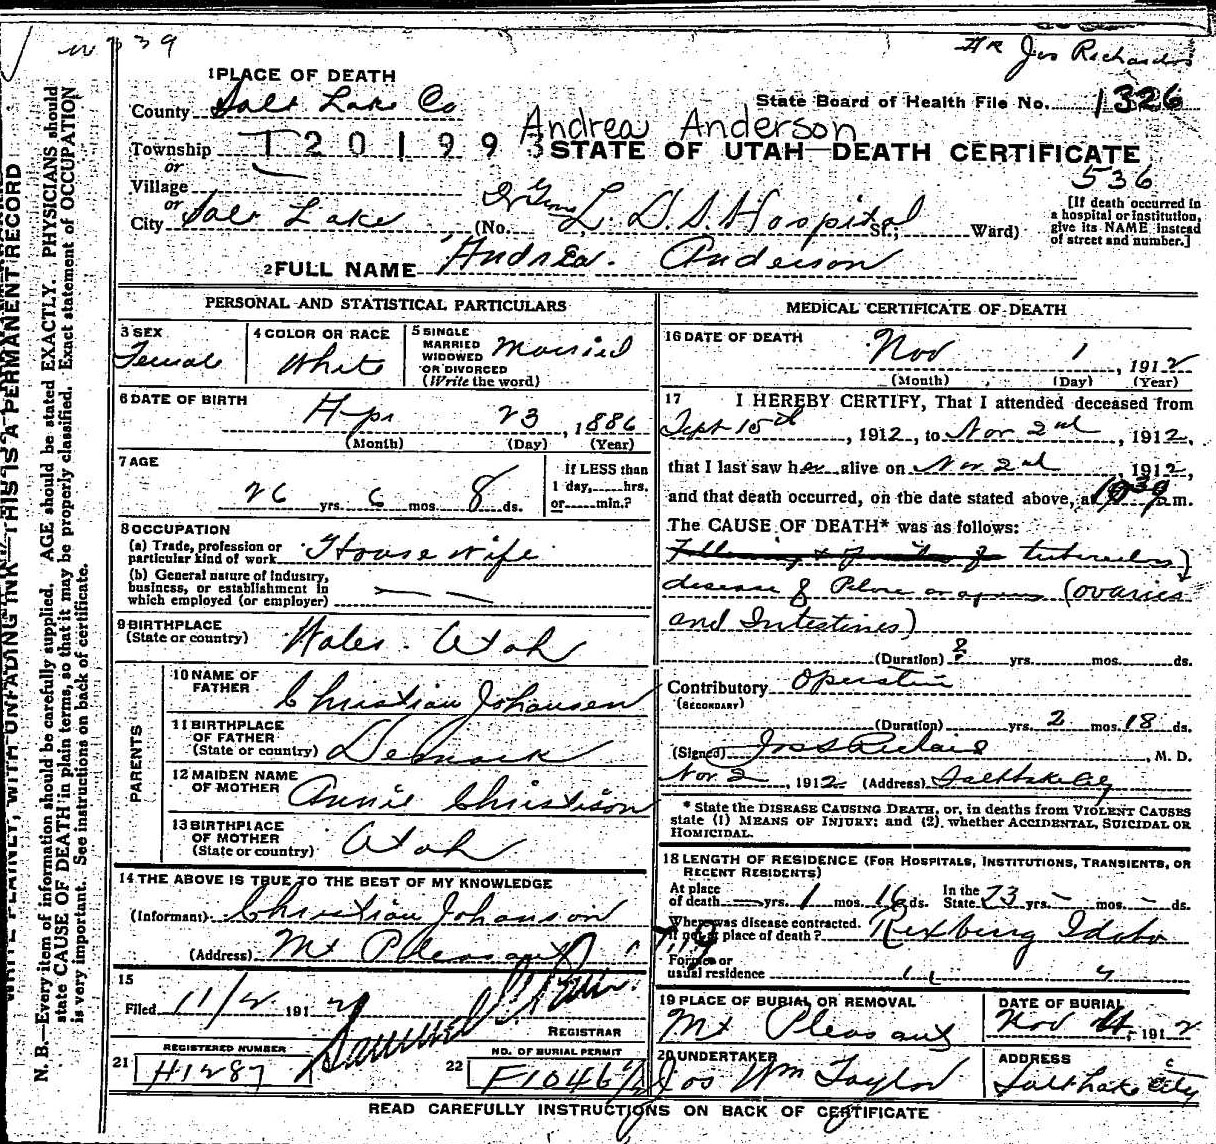 39
Jos Richards
1 PLACE OF DEATH
County Salt Lake Co
State Board of Health File No. 1326
Andrea Anderson
Township
T 2 0 1 9 9 3
STATE OF UTAH—DEATH CERTIFICATE
or
Village
536
or
City Salt Lake (No. L. D. S Hospital St.; Ward)
[If death occurred in a hospital or institution, give its NAME instead of street and number.]
2 FULL NAME Andrea. Anderson
PERSONAL AND STATISTICAL PARTICULARS
3 SEX Female
4 COLOR OR RACE White
5 SINGLE MARRIED WIDOWED OR DIVORCED (Write the word) Married
6 DATE OF BIRTH Apr 23, 1886
(Month) (Day) (Year)
7 AGE 26 yrs. 6 mos. 8 ds.
If LESS than 1 day, hrs. or min.?
8 OCCUPATION
(a) Trade, profession or particular kind of work House wife
(b) General nature of industry, business, or establishment in which employed (or employer) — —
9 BIRTHPLACE (State or country) Wales. Utah
PARENTS
10 NAME OF FATHER Christian Johansen
11 BIRTHPLACE OF FATHER (State or country) Denmark
12 MAIDEN NAME OF MOTHER Annie Christison
13 BIRTHPLACE OF MOTHER (State or country) Utah
14 THE ABOVE IS TRUE TO THE BEST OF MY KNOWLEDGE
(Informant) Christian Johanson
(Address) Mt Pleasant
15
Filed 11/2 1912
REGISTRAR
REGISTERED NUMBER
21 H1287
NO. OF BURIAL PERMIT
22 F1046
MEDICAL CERTIFICATE OF DEATH
16 DATE OF DEATH Nov 1, 1912
(Month) (Day) (Year)
17 I HEREBY CERTIFY, That I attended deceased from
Sept 15th, 1912, to Nov 2nd, 1912,
that I last saw her alive on Nov 2nd, 1912,
and that death occurred, on the date stated above, at m.
The CAUSE OF DEATH* was as follows:
tubercular
disease of (ovaries
and Intestines)
(Duration) ? yrs. mos. ds.
Contributory Operation
(SECONDARY)
(Duration) yrs. 2 mos. 18 ds.
(Signed) Jos S Richards, M. D.
Nov. 2, 1912 (Address) Salt Lake City
* State the DISEASE CAUSING DEATH, or, in deaths from VIOLENT CAUSES state (1) MEANS OF INJURY; and (2), whether ACCIDENTAL, SUICIDAL OR HOMICIDAL.
18 LENGTH OF RESIDENCE (FOR HOSPITALS, INSTITUTIONS, TRANSIENTS, OR RECENT RESIDENTS)
At place of death — yrs. 1 mos. 16 ds. In the State 23 yrs. - mos. - ds.
Where was disease contracted, if not at place of death? Rexburg Idaho
Former or usual residence " "
19 PLACE OF BURIAL OR REMOVAL
Mt Pleasant
DATE OF BURIAL
Nov 4, 1912
20 UNDERTAKER
Jos Wm Taylor
ADDRESS
Salt Lake City
READ CAREFULLY INSTRUCTIONS ON BACK OF CERTIFICATE
WRITE PLAINLY, WITH UNFADING INK—THIS IS A PERMANENT RECORD
N. B.—Every item of information should be carefully supplied. AGE should be stated EXACTLY. PHYSICIANS should
state CAUSE OF DEATH in plain terms, so that it may be properly classified. Exact statement of OCCUPATION
is very important. See instructions on back of certificate.